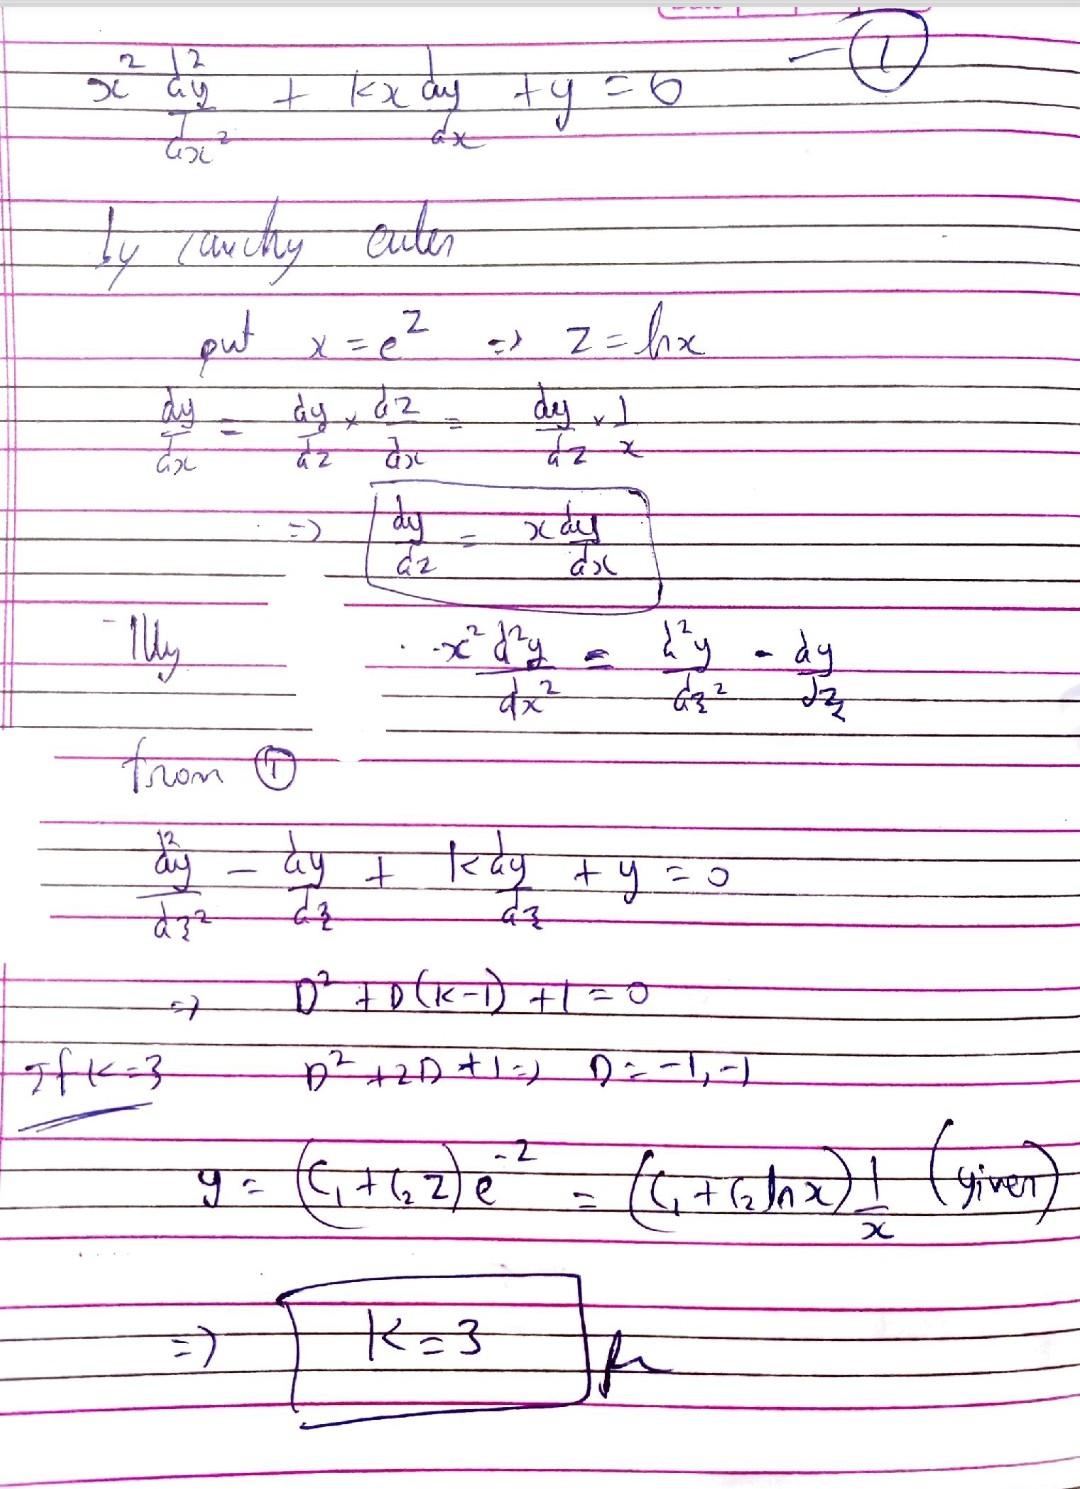 x² d²y/dx² + kx dy/dx + y = 0 — ①
by cauchy euler
put x = e^z => z = lnx
dy/dx = dy/dz × dz/dx = dy/dz × 1/x
=> dy/dz = x dy/dx
Illy x² d²y/dx² = d²y/dz² - dy/dz
from ①
d²y/dz² - dy/dz + k dy/dz + y = 0
=> D² + D(k-1) + 1 = 0
If k=3 D² + 2D + 1 => D = -1, -1
y = (C₁ + C₂ z) e^-z = (C₁ + C₂ ln x) 1/x (given)
=> k = 3